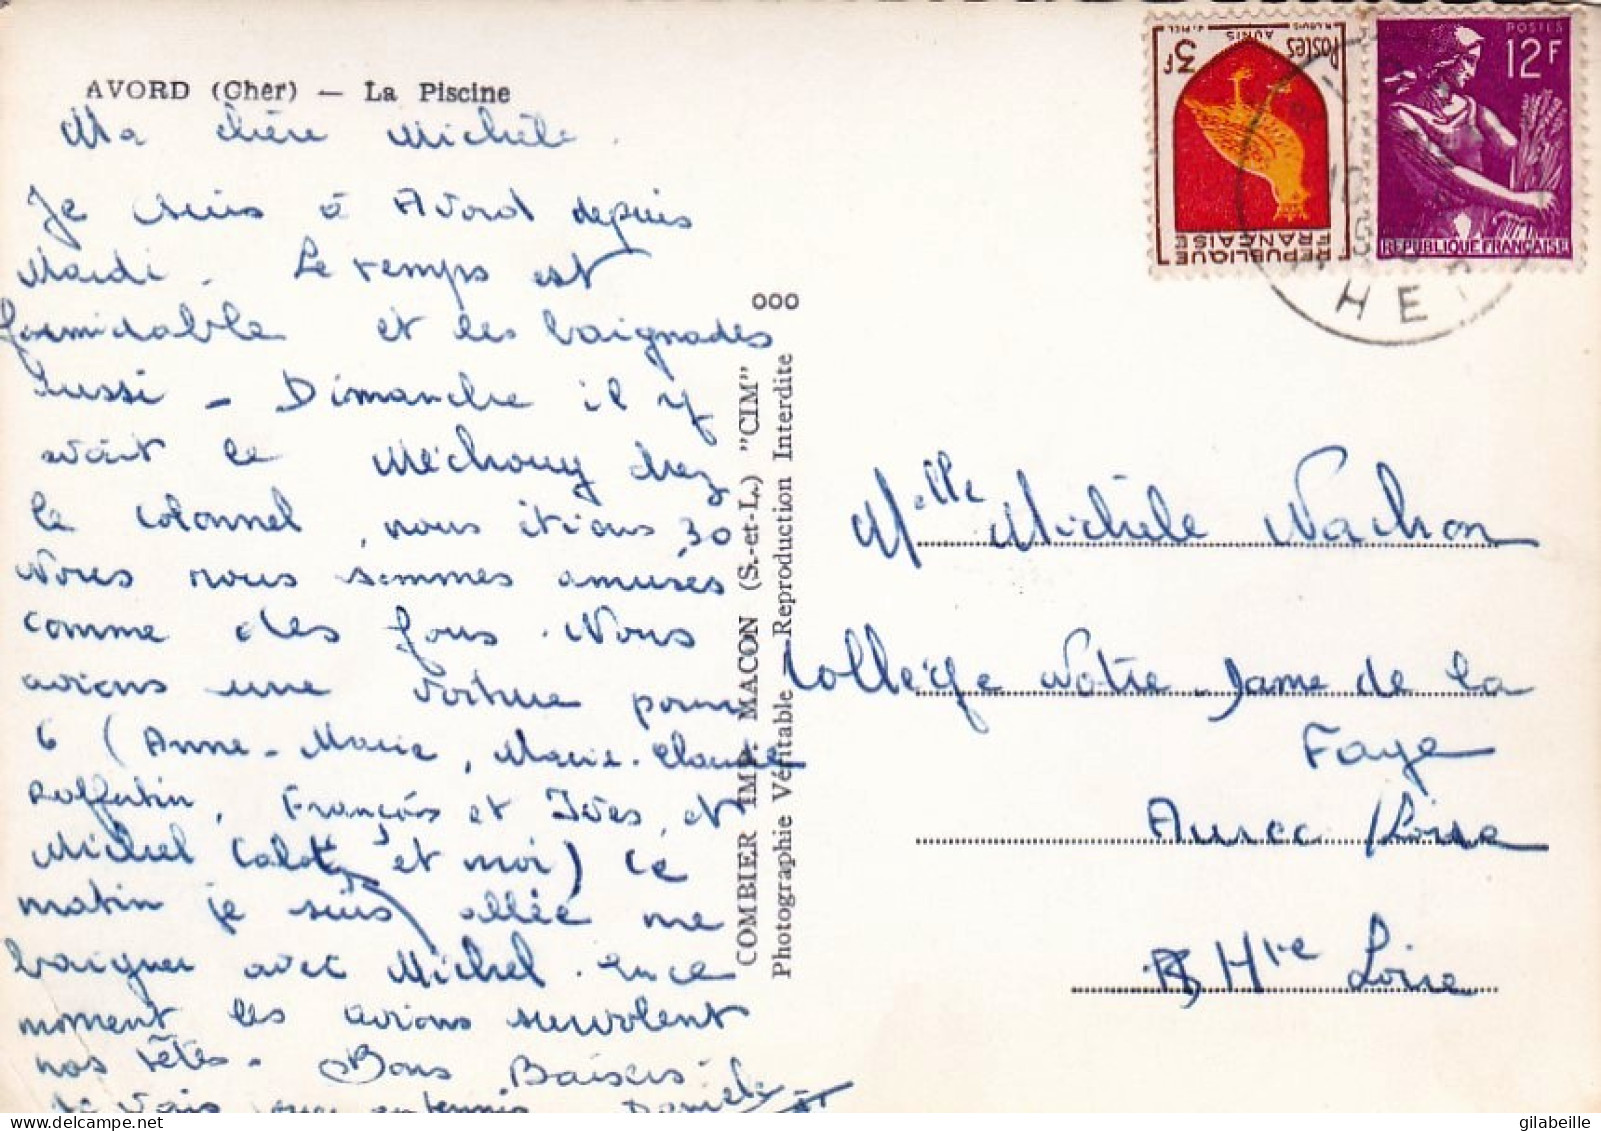 AVORD (Cher) — La Piscine
Ma chère Michèle.
Je suis à Avord depuis
Mardi. Le temps est
formidable et les baignades
aussi - Dimanche il y
avait le Méchouy chez
le colonnel, nous étions 30
Nous nous sommes amusés
comme des fous. Nous
avions une voiture pour
6 (Anne-Marie, Marie-Claude
François et Ives, et
Michel et moi) Ce
matin je suis allée me
baigner avec Michel. en ce
moment les avions survolent
nos têtes. Bons Baisers
Je vais
Danièle
ooo
COMBIER IMP. MACON (S.-et-L.) "CIM"
Photographie Véritable - Reproduction Interdite
3F
Postes
AUNIS
REPUBLIQUE
FRANÇAISE
POSTES
12F
REPUBLIQUE FRANÇAISE
HE
Melle Michèle Vachon
Collège Notre-Dame de la
Faye
Aurec /Loire
Hte Loire
gilabeille